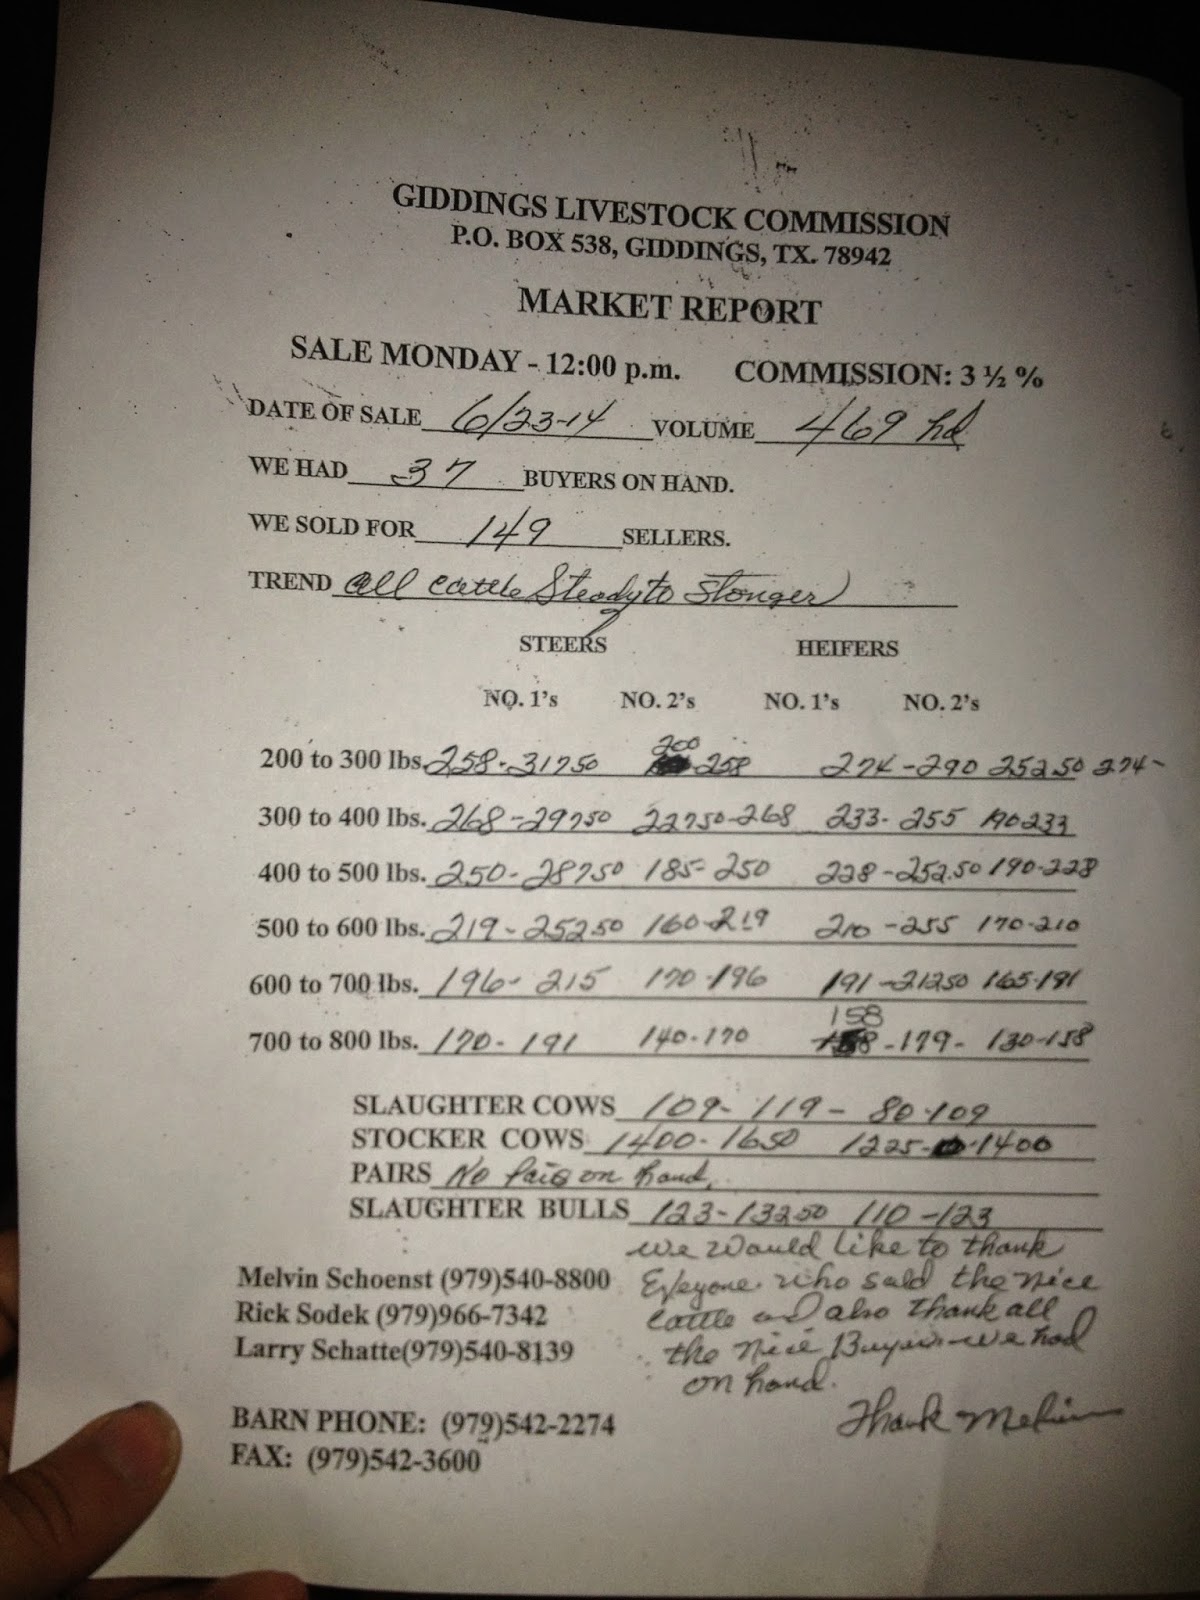 GIDDINGS LIVESTOCK COMMISSION
P.O. BOX 538, GIDDINGS, TX. 78942
MARKET REPORT
SALE MONDAY - 12:00 p.m. COMMISSION: 3 ½ %
DATE OF SALE 6/23-14 VOLUME 469 hd
WE HAD 37 BUYERS ON HAND.
WE SOLD FOR 149 SELLERS.
TREND all cattle Steady to Stonger
STEERS HEIFERS
NO. 1's NO. 2's NO. 1's NO. 2's
200 to 300 lbs. 258-31750 200-258 274-290 25250 274-
300 to 400 lbs. 268-29750 22750-268 233-255 190-233
400 to 500 lbs. 250-28750 185-250 228-252.50 190-228
500 to 600 lbs. 219-25250 160-219 210-255 170-210
600 to 700 lbs. 196-215 170-196 191-21250 165-191
700 to 800 lbs. 170-191 140-170 158-179- 130-158
SLAUGHTER COWS 109-119- 80-109
STOCKER COWS 1400-1650 1225-1400
PAIRS No Pairs on hand.
SLAUGHTER BULLS 123-13250 110-123
we would like to thank
Melvin Schoenst (979)540-8800 Eveyone who sold the nice
Rick Sodek (979)966-7342 cattle and also thank all
Larry Schatte(979)540-8139 the nice Buyers we had
on hand.
BARN PHONE: (979)542-2274 Thank Melvin
FAX: (979)542-3600